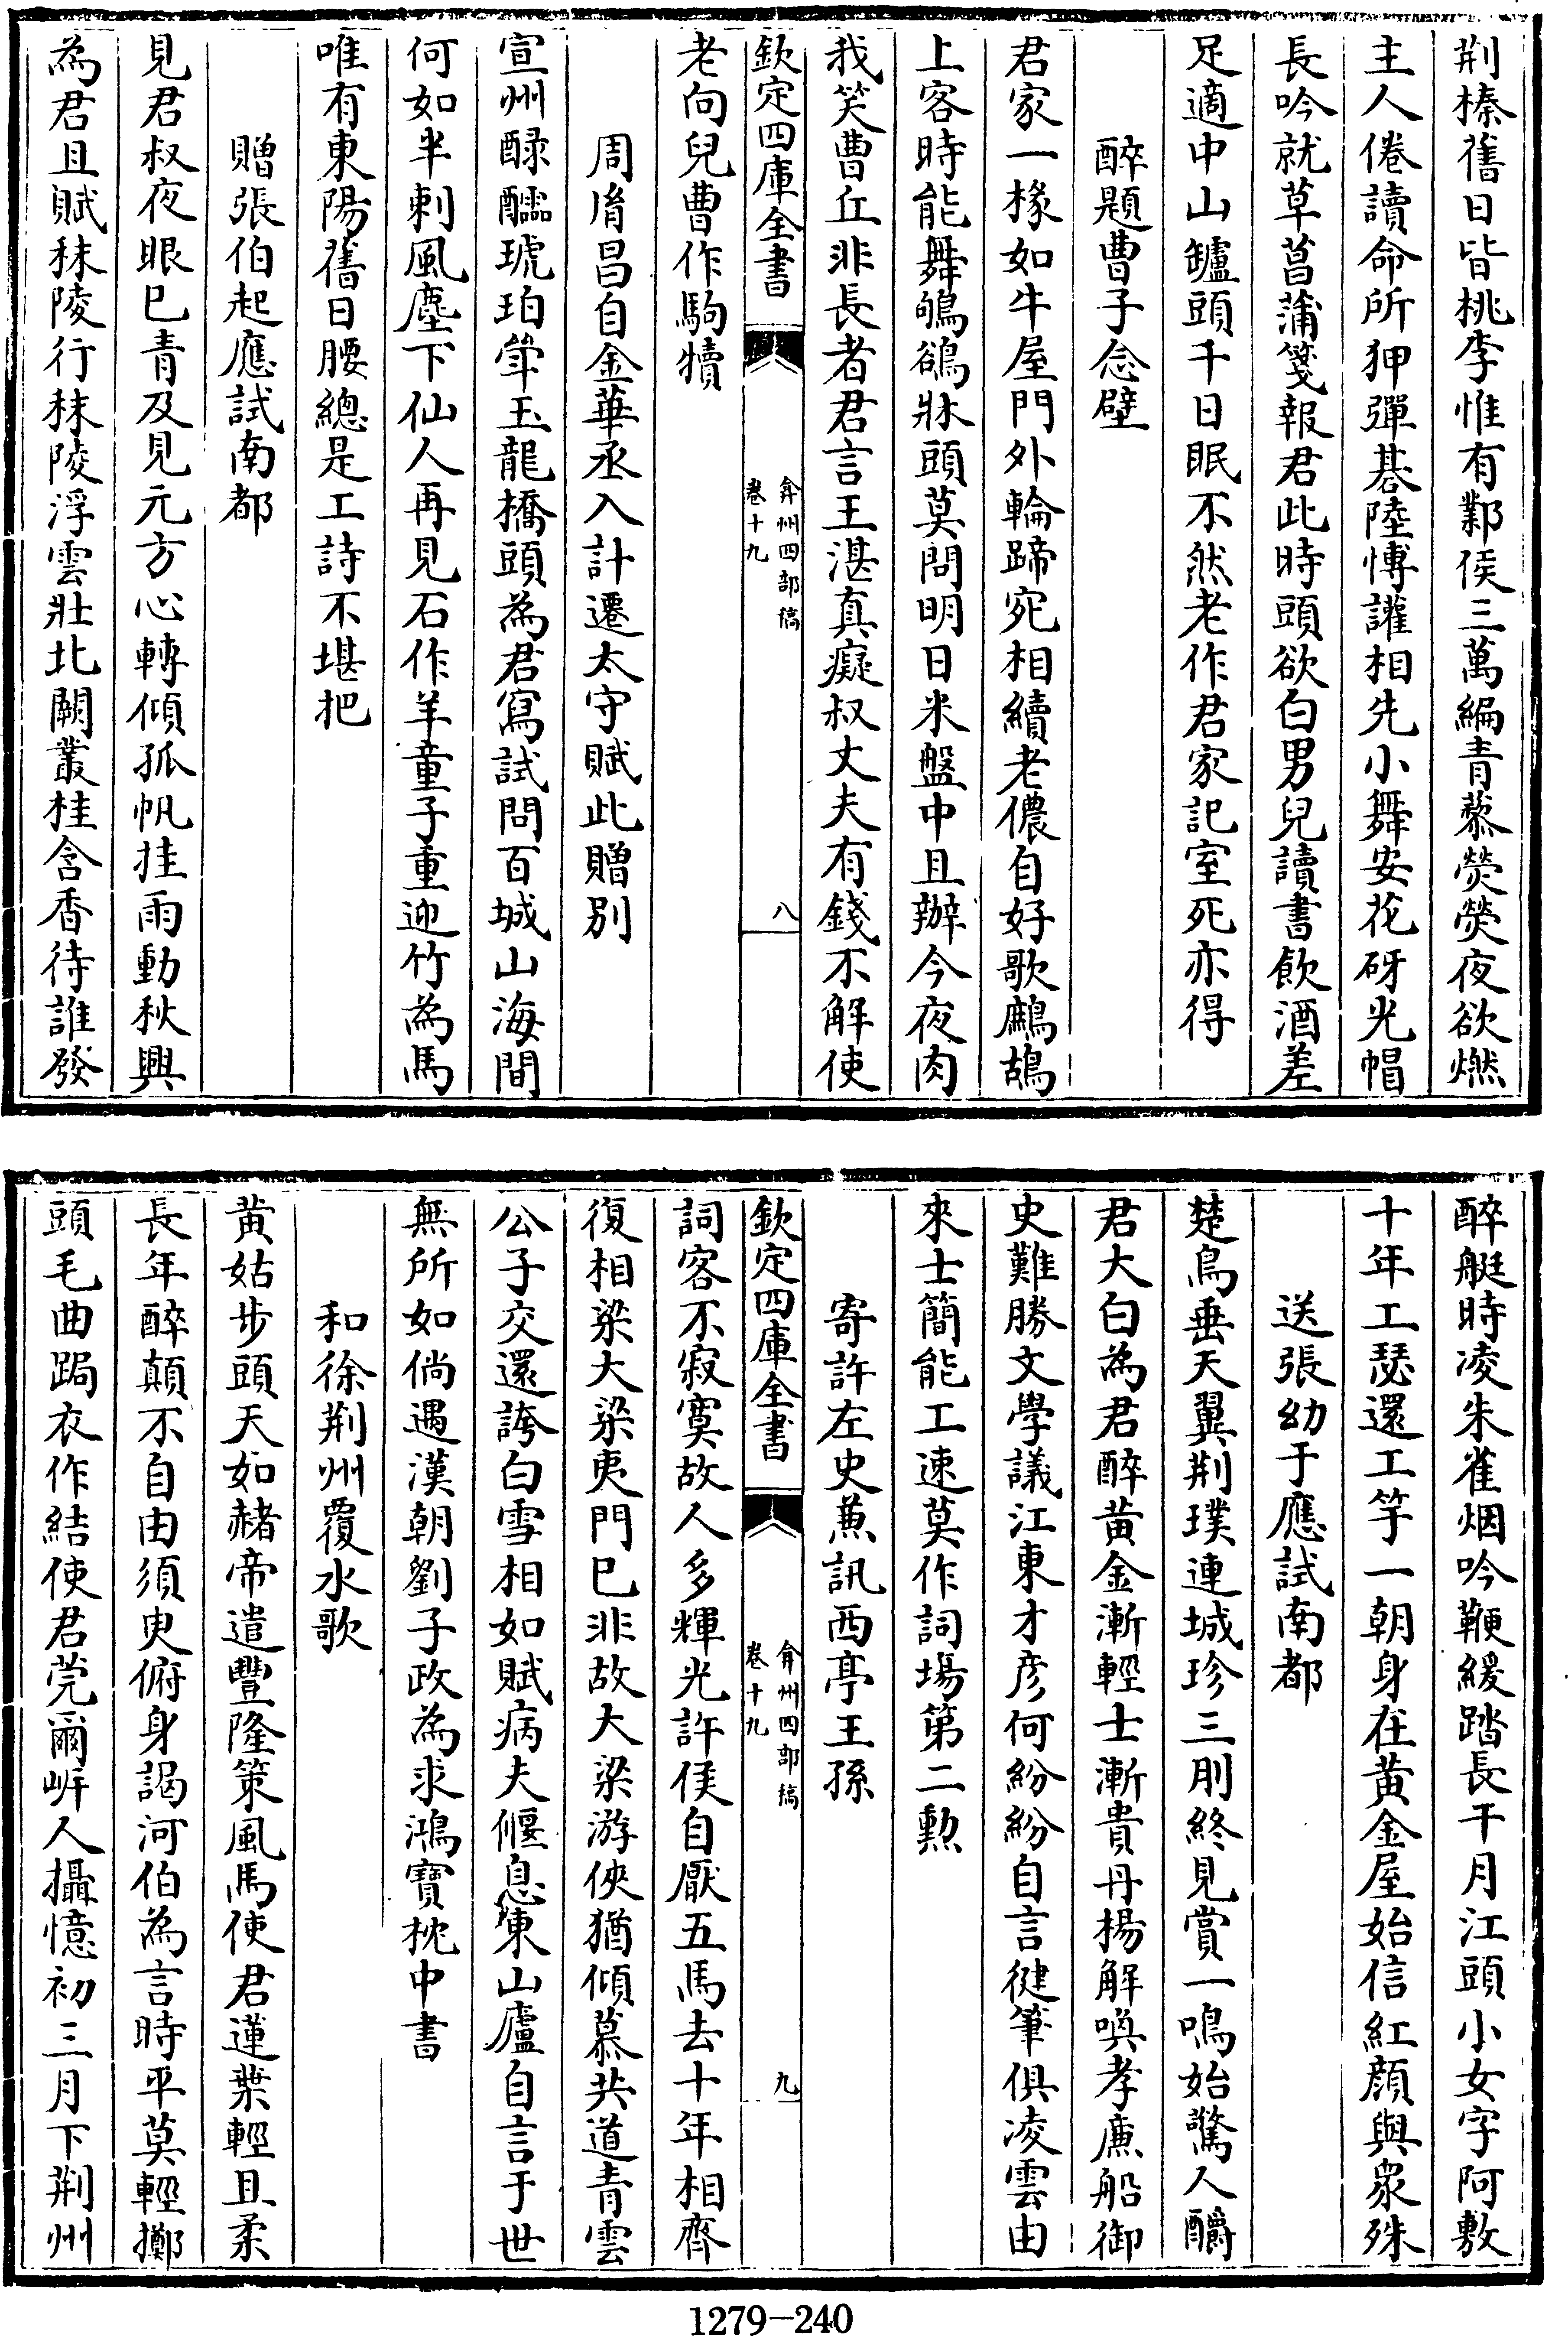 荆榛舊日皆桃李惟有鄴侯三萬編青藜熒熒夜欲燃
主人倦讀命所狎彈碁陸博讙相先小舞安花砑光帽
長吟就草菖蒲箋報君此時頭欲白男兒讀書飲酒差
足適中山罏頭千日眠不然老作君家記室死亦得
醉題曹子念壁
君家一椽如牛屋門外輪蹄宛相續老儂自好歌鷓鴣
上客時能舞鴝鵒牀頭莫問明日米盤中且辦今夜肉
我笑曹丘非長者君言王湛真癡叔丈夫有錢不解使
欽定四庫全書
弇州四部稿
卷十九
八
老向兒曹作駒犢
周胥昌自金華丞入計遷太守賦此贈別
宣州醁醽琥珀斝玉龍橋頭為君寫試問百城山海間
何如半剌風塵下仙人再見石作羊童子重迎竹為馬
唯有東陽舊日腰總是工詩不堪把
贈張伯起應試南都
見君叔夜眼已青及見元方心轉傾孤帆挂雨動秋興
為君且賦秣陵行秣陵浮雲壯北闕叢桂含香待誰發
醉艇時凌朱雀烟吟鞭緩踏長干月江頭小女字阿敷
十年工瑟還工竽一朝身在黄金屋始信紅顔與衆殊
送張幼于應試南都
楚鳥垂天翼荆璞連城珍三刖終見賞一鳴始驚人釂
君大白為君醉黄金漸輕士漸貴丹楊解喚孝廉船御
史難勝文學議江東才彦何紛紛自言健筆俱凌雲由
來士簡能工速莫作詞場第二勲
寄許左史蕪訊西亭王孫
欽定四庫全書
弇州四部稿
卷十九
九
詞客不寂寞故人多輝光許侯自厭五馬去十年相齊
復相梁大梁夷門已非故大梁游俠猶傾慕共道青雲
公子交還誇白雪相如賦病夫偃息東山廬自言于世
無所如倘遇漢朝劉子政為求鴻寶枕中書
和徐荆州覆水歌
黄姑步頭天如赭帝遣豐隆策風馬使君蓮葉輕且柔
長年醉顛不自由須臾俯身謁河伯為言時平莫輕擲
頭毛曲跼衣作結使君莞爾岍人攝憶初三月下荆州
1279-240